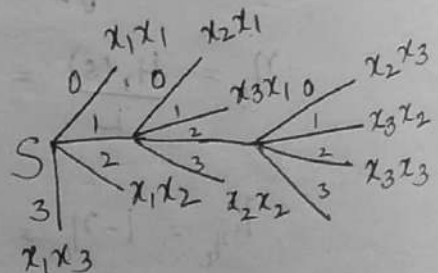 x₁x₁ x₂x₁
0 0 x₃x₁ 0 x₂x₃
1 1 2 1 x₃x₂
S 2 3 2 x₃x₃
3 x₁x₂ x₂x₂ 3
x₁x₃